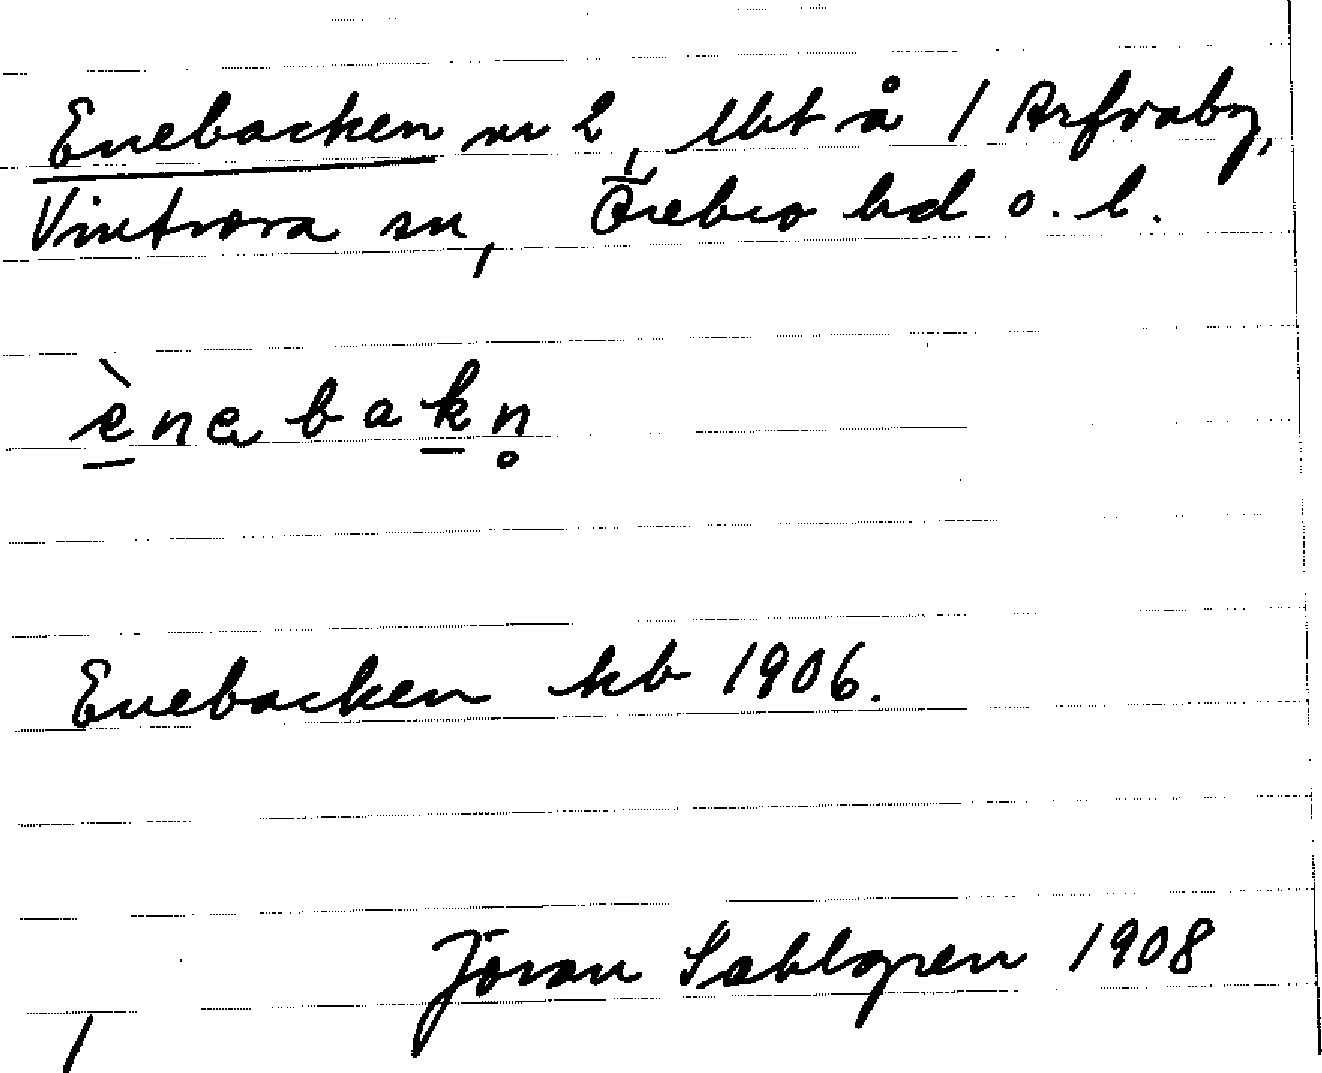 Enebacken nr 2, lht å 1 Arfvaby,
Vintrosa sn, Örebro hd o. l.
ènabakn̥
Enebacken kb 1906.
Jöran Sahlgren 1908